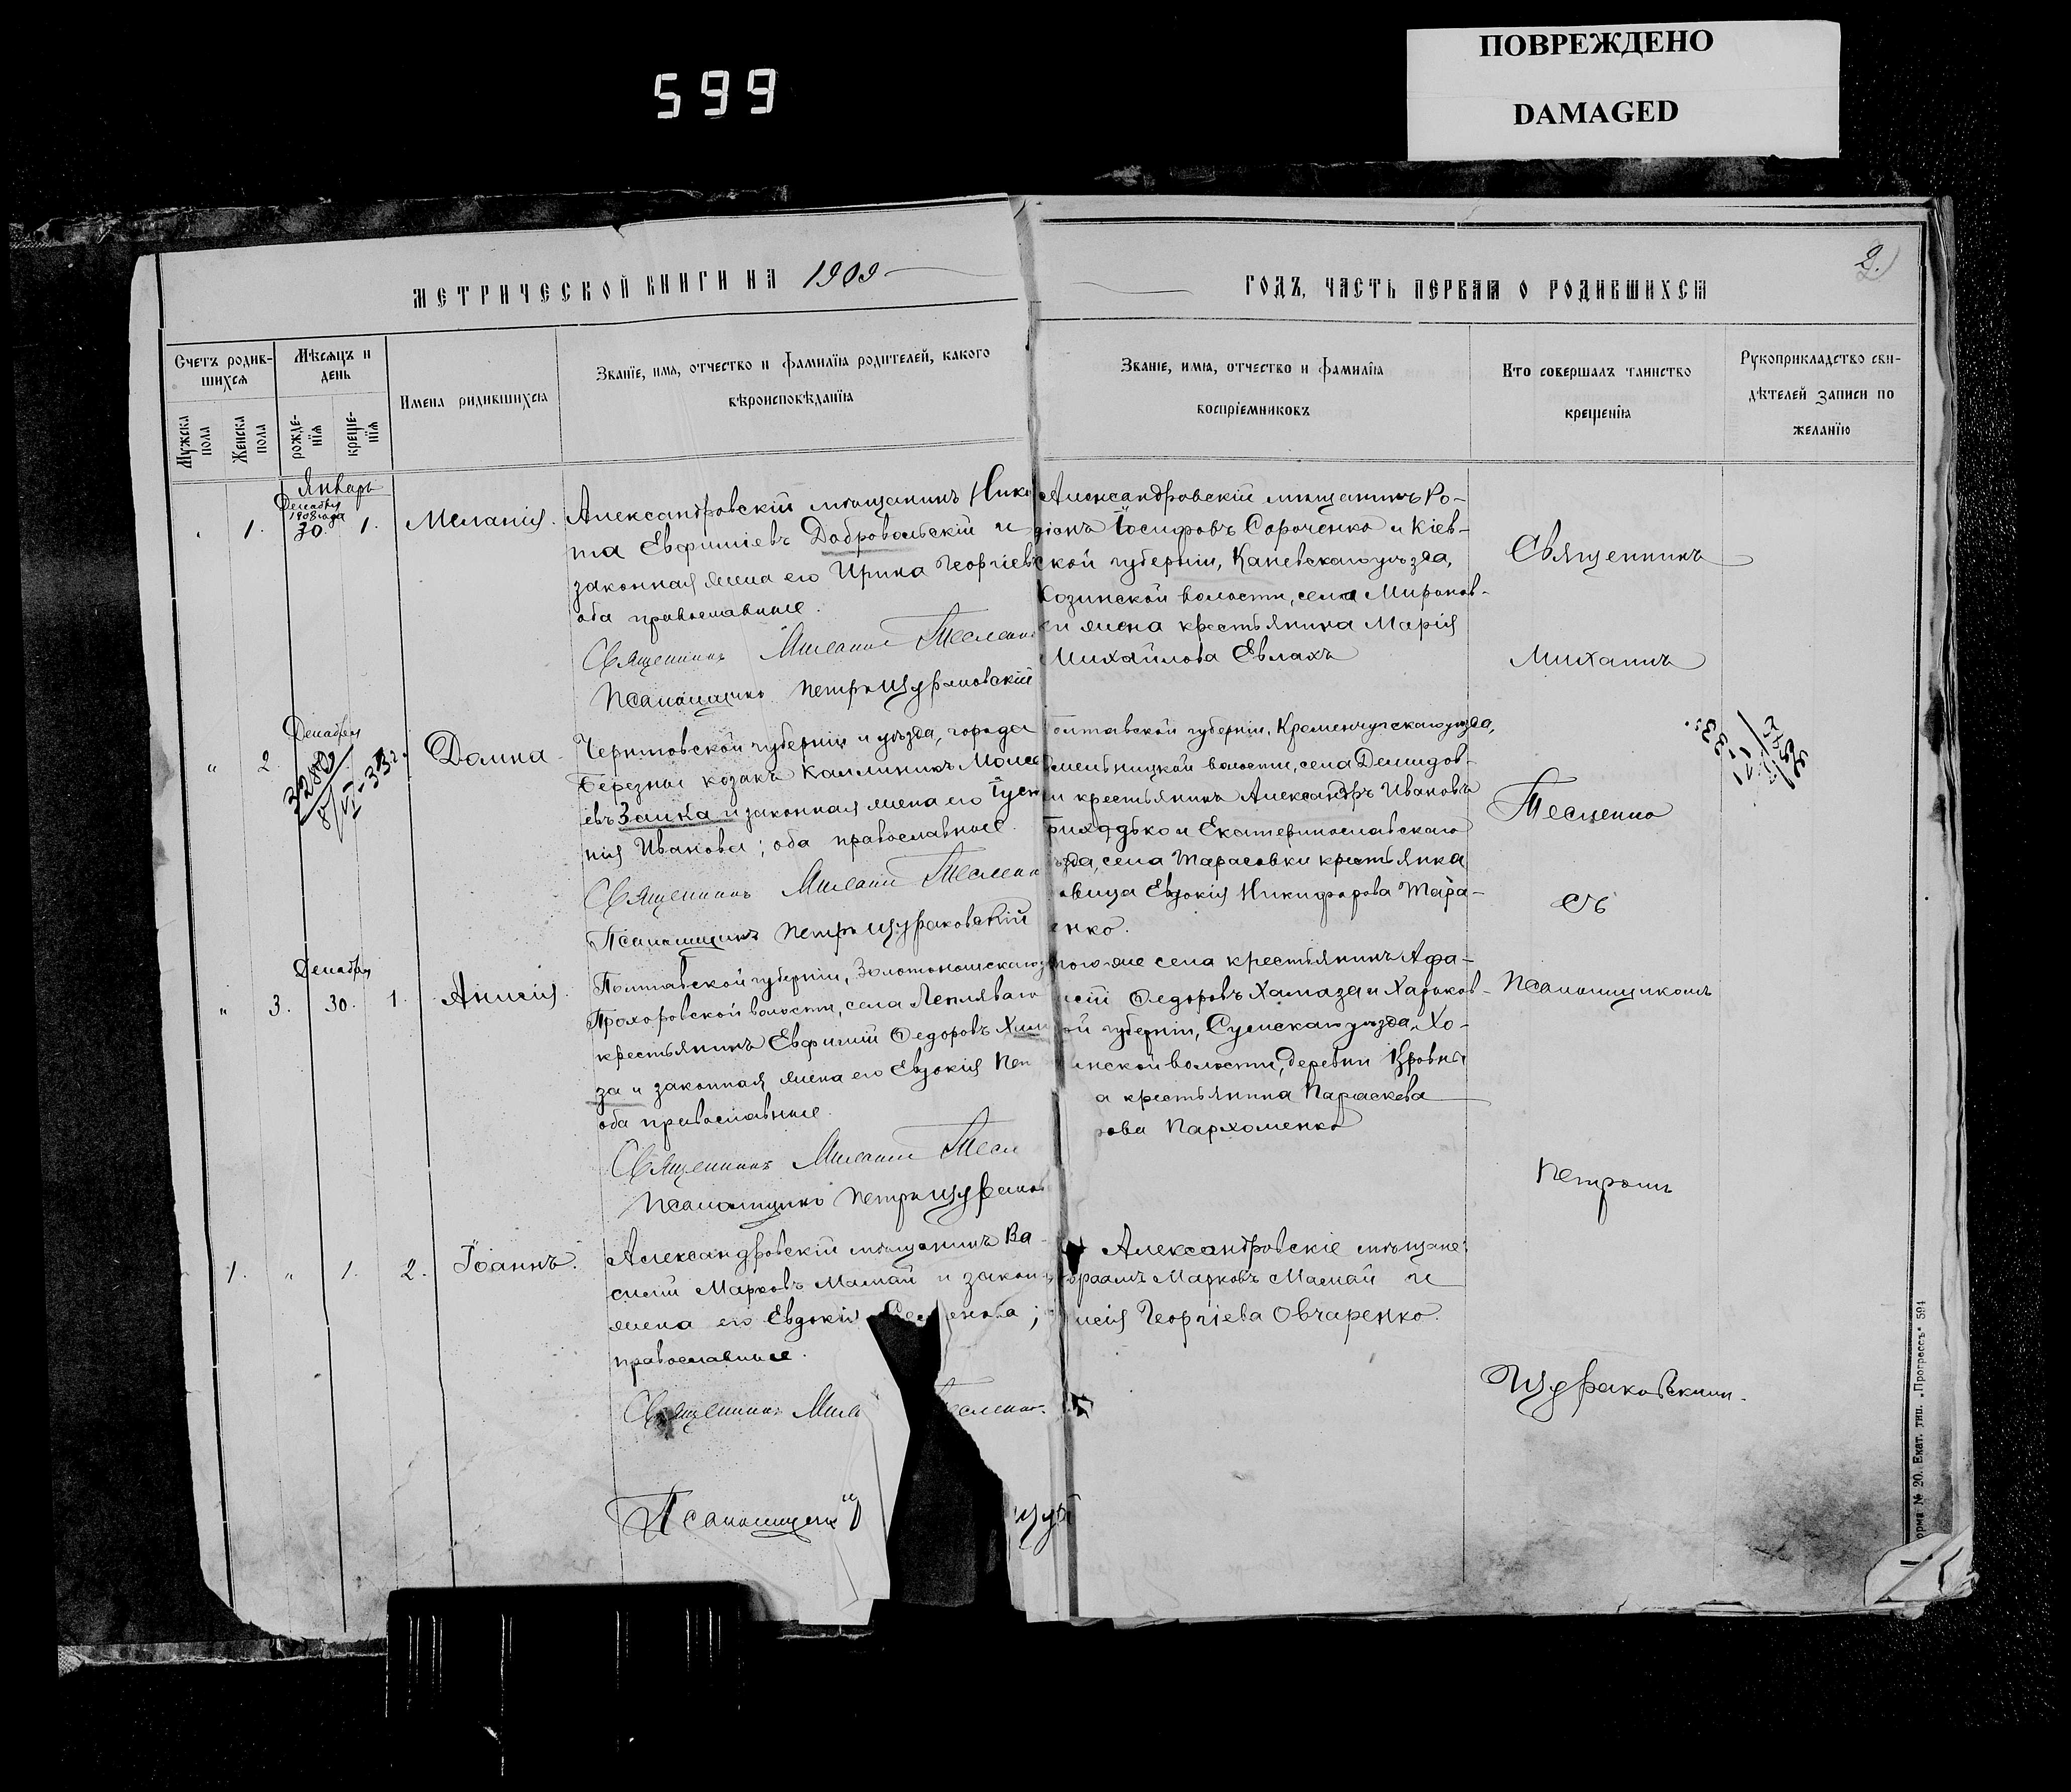 ПОВРЕЖДЕНО
DAMAGED
599
МЕТРИЧЕСКОЙ КНИГИ НА 1909
ГОДЪ, ЧАСТЬ ПЕРВАЯ О РОДИВШИХСЯ
2.
Счетъ родив-
шихся
Мужска
пола
Женска
пола
Мѣсяцъ и
день
рожде-
нія
креще-
нія
Имена родившихся
Званіе, имя, отчество и фамилія родителей, какого
вѣроисповѣданія
Званіе, имя, отчество и фамилія
воспріемниковъ
Кто совершалъ таинство
крещенія
Рукоприкладство сви-
дѣтелей записи по
желанію
Январь
Декабря
1908 года
" 1. 30. 1. Меланія.
Александровскій мѣщанинъ Ники
та Евфиміевъ Добровольскій и
законная жена его Ирина Георгіев
оба православные.
Священникъ Михаилъ Тесленко
Псаломщикъ Петръ Щураковскій
Александровскій мѣщанинъ Ро-
діонъ Іосифовъ Сороченко и Кіев-
ской губерніи, Каневскаго уѣзда,
Козинской волости, села Миронов-
ки жена крестьянина Марія
Михайлова Евлахъ
Священникъ
Михаилъ
Тесленко
съ
Псаломщикомъ
Петромъ
Щураковскимъ.
Декабря
" 2.
8/VI-33г.
Домна
Черниговской губерніи и уѣзда, города
Березны козакъ Каллиникъ Моисе
евъ Заика и законная жена его Іуст
нія Иванова; оба православные.
Священникъ Михаилъ Тесленко
Псаломщикъ Петръ Щураковскій
олтавской губерніи, Кременчугскаго уѣзда,
мельницкой волости, села Демидов-
ки крестьянинъ Александръ Ивановъ
Приходько и Екатеринославскаго
ѣзда, села Тарасовки крестьянка
овица Евдокія Никифорова Тара-
енко.
Декабря
" 3. 30. 1. Анисія.
Полтавской губерніи, Золотоношскаго у
Прохоровской волости, села Лепляваго
крестьянинъ Евфимій Ѳедоровъ Хама
за и законная жена его Евдокія Пет
оба православные.
Священникъ Михаилъ Тесл
Псаломщикъ Петръ Щураков
того же села крестьянинъ Афа-
насій Ѳедоровъ Хамаза и Харьков-
ой губерніи, Сумскаго уѣзда, Хо-
инской волости, деревни Кровны
а крестьянина Параскева
рова Пархоменко
1. " 1. 2. Іоаннъ.
Александровскій мѣщанинъ Ва-
силій Марковъ Мамай и законн
жена его Евдокія
православные.
Священникъ Миха есленко.
Псаломщикъ П Щур
Александровскіе мѣщане:
враамъ Марковъ Мамай и
исія Георгіева Овчаренко.
орма № 20. Екат. тип. „Прогрессъ" 594